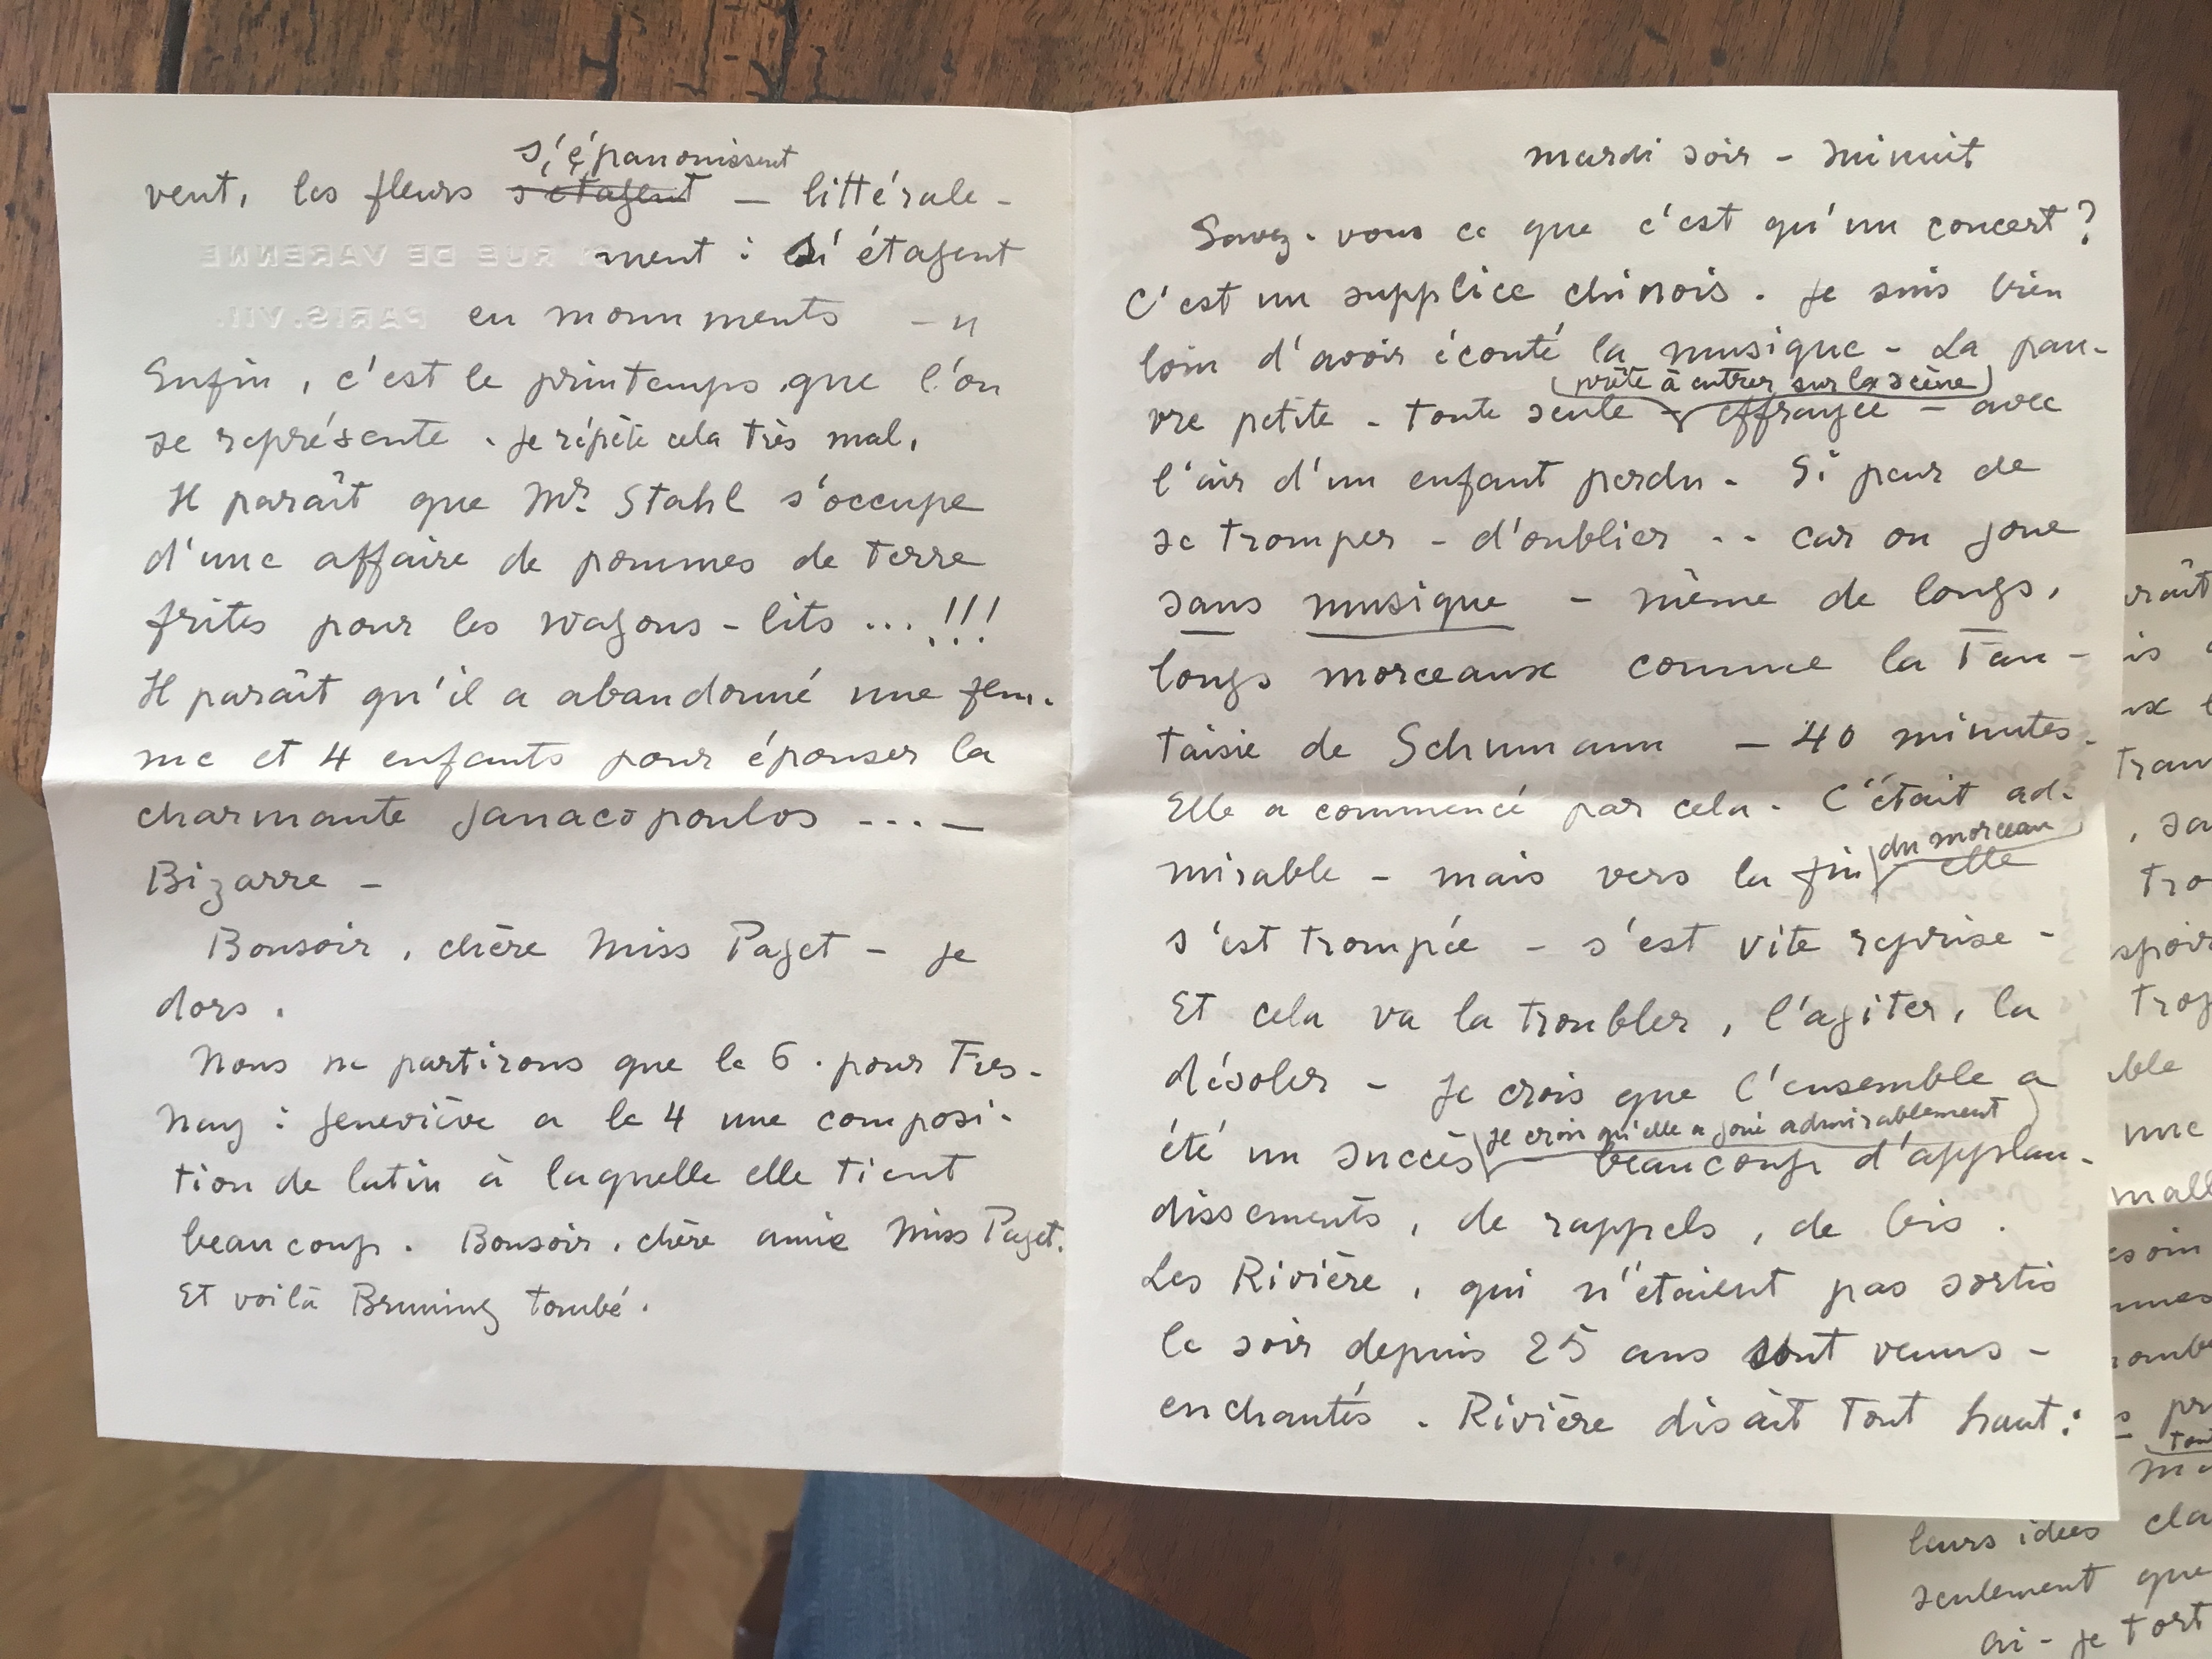 vent, les fleurs s'étagent s'épanouissent – littérale-
ment : s'étagent
en monuments – "
Enfin, c'est le printemps que l'on
se représente. Je répète cela très mal.
Il paraît que Mr. Stahl s'occupe
d'une affaire de pommes de terre
frites pour les wagons-lits ... !!!
Il paraît qu'il a abandonné une fem-
me et 4 enfants pour épouser la
charmante Janacopoulos ... –
Bizarre –
Bonsoir, chère Miss Paget – je
dors.
Nous ne partirons que le 6. pour Fres-
nay : Geneviève a le 4 une composi-
tion de latin à laquelle elle tient
beaucoup. Bonsoir, chère amie Miss Paget.
Et voilà Bruning tombé.
RUE DE VARENNE
PARIS.VII.
mardi soir – minuit
Savez-vous ce que c'est qu'un concert ?
C'est un supplice chinois. Je suis bien
loin d'avoir écouté la musique – La pau-
vre petite – toute seule – prête à entrer sur la scène effrayée – avec
l'air d'un enfant perdu – Si peur de
se tromper – d'oublier .. car on joue
sans musique – même de longs,
longs morceaux comme la Fan-
taisie de Schumann – 40 minutes.
Elle a commencé par cela – C'était ad-
mirable – mais vers la fin du morceau elle
s'est trompée – s'est vite reprise –
Et cela va la troubler, l'agiter, la
désoler – Je crois que l'ensemble a
été un succès je crois qu'elle a joué admirablement – beaucoup d'applau-
dissements, de rappels, de bis.
Les Rivière, qui n'étaient pas sortis
le soir depuis 25 ans sont venus –
enchantés. Rivière disait tout haut :
leurs idées
seulement que
ai-je tort